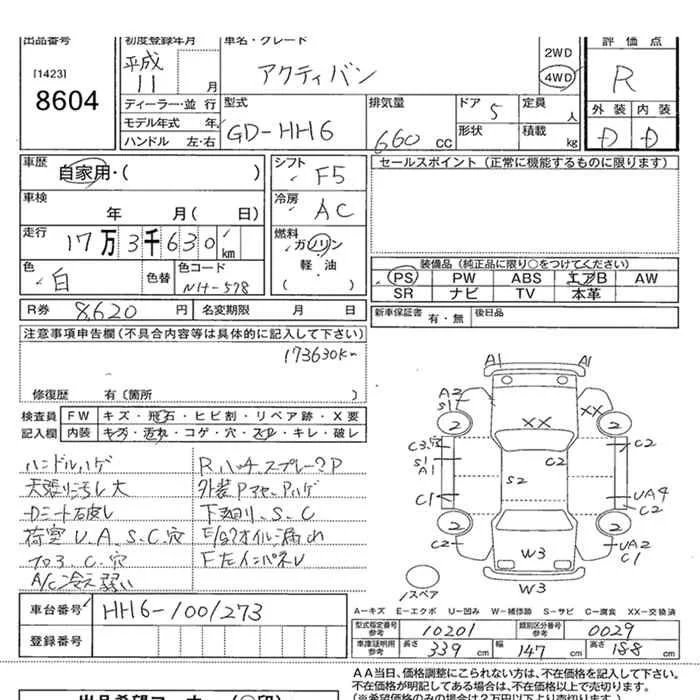 出品番号
[1423]
8604
初度登録年月
平成 11 月
ディーラー・並行
モデル年式 年
ハンドル 左・右
車名・グレード
アクティバン
2WD
4WD
型式
GD-HH6
排気量
660 cc
ドア 5
形状
定員 人
積載 kg
評価点
R
外装 内装
D D
車歴
自家用・( )
車検
年 月( 日)
走行
17万3千630 km
色
白
色替
色コード
NH-578
シフト
F5
冷房
AC
燃料
ガソリン
軽・油
( )
セールスポイント(正常に機能するものに限ります)
装備品(純正品に限り○をつけてください)
PS PW ABS エアB AW
SR ナビ TV 本革
R券 8,620 円 名変期限 月 日
新車保証書 有・無 後日品
注意事項申告欄(不具合内容等は具体的に記入して下さい)
173630km
修復歴 有(箇所 )
検査員 FW キズ・飛石・ヒビ割・リペア跡・X要
記入欄 内装 キズ・汚れ・コゲ・穴・スレ・キレ・破レ
ハンドルハゲ
天張り汚し大
荷室U、A、S、C穴
フロア、C、穴
A/C冷え弱い
外装Pマセ、Pハゲ
下廻り、S、C
E/gオイル漏れ
A1 A1
A2
S1
XX XX
2 2
C3穴 C2
S1
A1
C2
S2
C1
UA4
C2
2 2
C2
UA2
C1
W3
W3
スペア
A-キズ E-エクボ U-凹み W-補修跡 S-サビ C-腐食 XX-交換済
車台番号 HH6-1001273
登録番号
型式指定番号 参考 10201 類別区分番号 参考 0029
車庫証明用 参考 長さ 339 cm 幅 147 cm 高さ 188 cm
AA当日、価格調整にこられない方は、不在価格を記入して下さい。
不在価格が明記してある場合は、不在価格以上で売切ります。